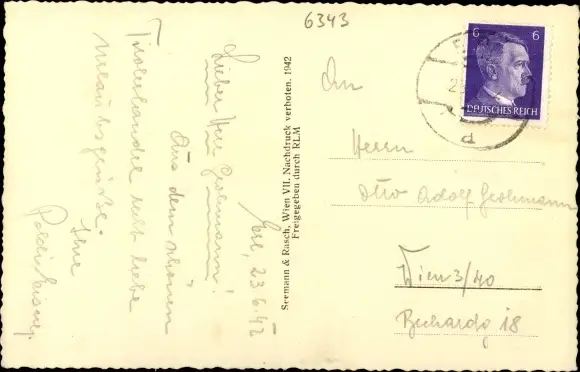 6343
6 6
DEUTSCHES REICH
An
Herrn
Otto Adolf Grohmann
Wien 3/40
18
Seemann & Rasch, Wien VII. Nachdruck verboten. 1942
Freigegeben durch RLM
23.6.42
Lieber Herr Grohmann!
Aus dem schönen
Tirolerlandel recht liebe
Urlaubsgrüße.
Ihre
Poldi